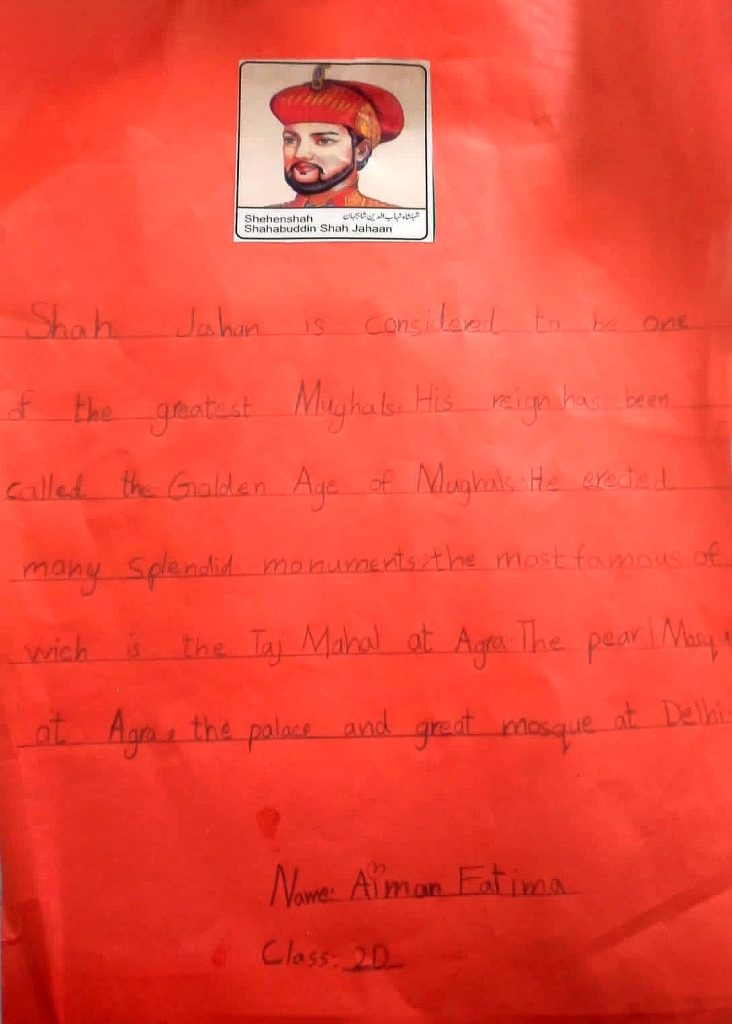 Shehenshah شہنشاہ شہاب الدین شاہجہان
Shahabuddin Shah Jahaan
Shah Jahan is considered to be one
of the greatest Mughals. His reign has been
called the Golden Age of Mughals. He erected
many splendid monuments, the most famous of
wich is the Taj Mahal at Agra. The pearl Mosqu
at Agra, the palace and great mosque at Delhi.
Name: Aiman Fatima
Class: 2D